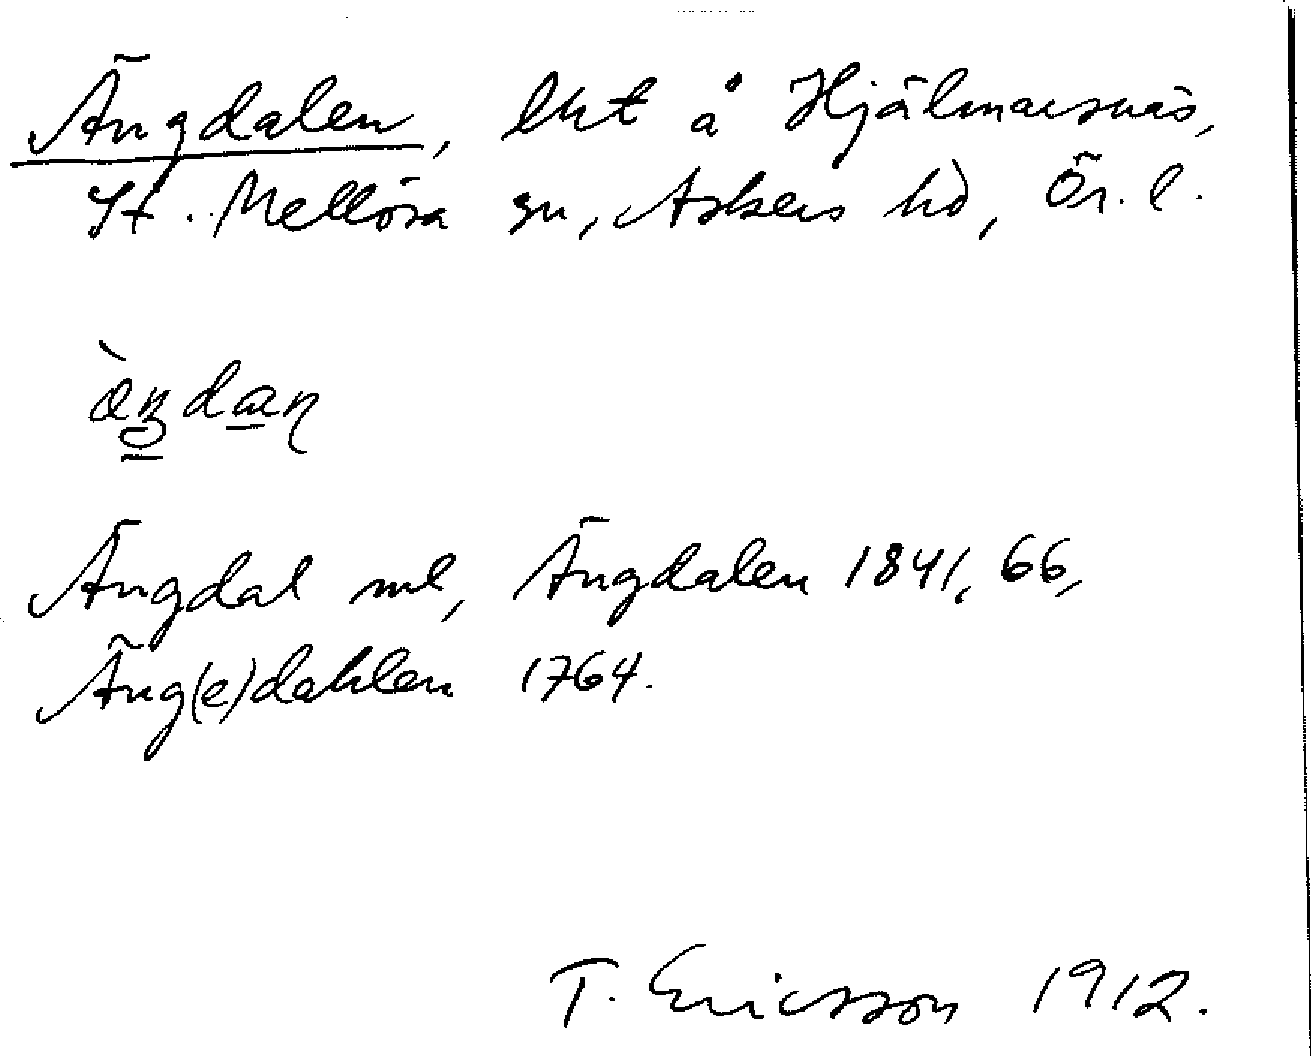 Ängdalen, lht å Hjälmarsnäs,
St. Mellösa sn, Askers hd, Ör. l.
Ängdal ml, Ängdalen 1841, 66,
Äng(e)dahlen 1764.
T. Ericsson 1912.